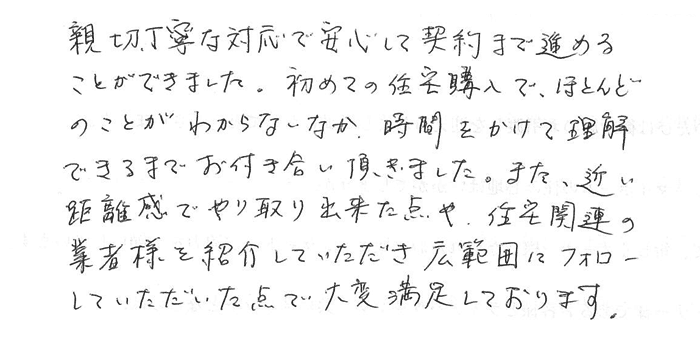 親切丁寧な対応で安心して契約まで進める
ことができました。初めての住宅購入で、ほとんど
のことがわからないなか、時間をかけて理解
できるまでお付き合い頂きました。また、近い
距離感でやり取り出来た点や、住宅関連の
業者様を紹介していただき広範囲にフォロー
していただいた点で大変満足しております。